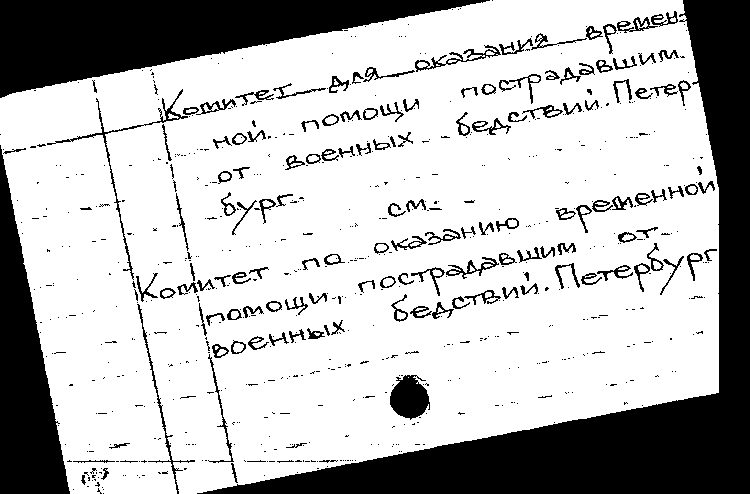 Комитет для оказания времен-
ной помощи пострадавшим
от военных бедствий. Петер-
бург
см.
Комитет по оказанию временной
помощи, пострадавшим от
военных бедствий. Петербург